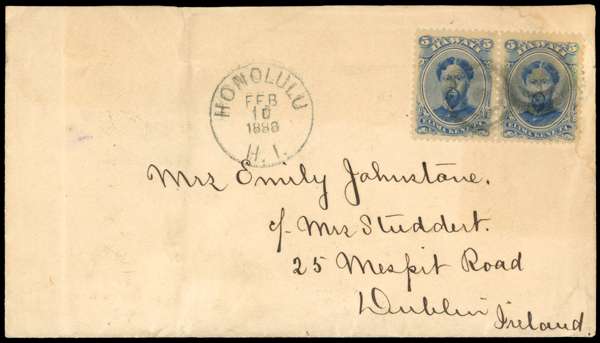 HONOLULU
FEB
10
1886
H. I.
5 HAWAII 5
5 HAWAII 5
Mrs Emily Johnstone.
c/- Mrs Studdert.
25 Mespit Road
Dublin
Ireland.